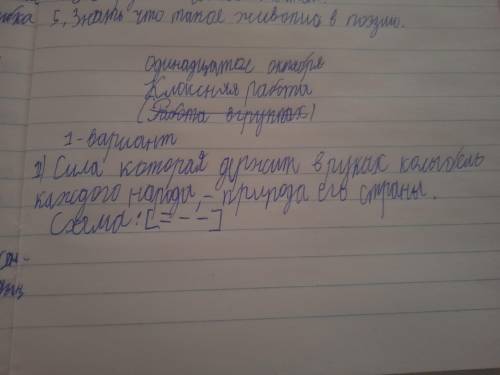 5, Знать что такое живопись в поэзию.
одинадцатое октября
Класная работа
(Работа в группах)
1-вариант
1) Сила которая держит в руках колыбель
каждого народа, - природа его страны.
Схема: [= - -]